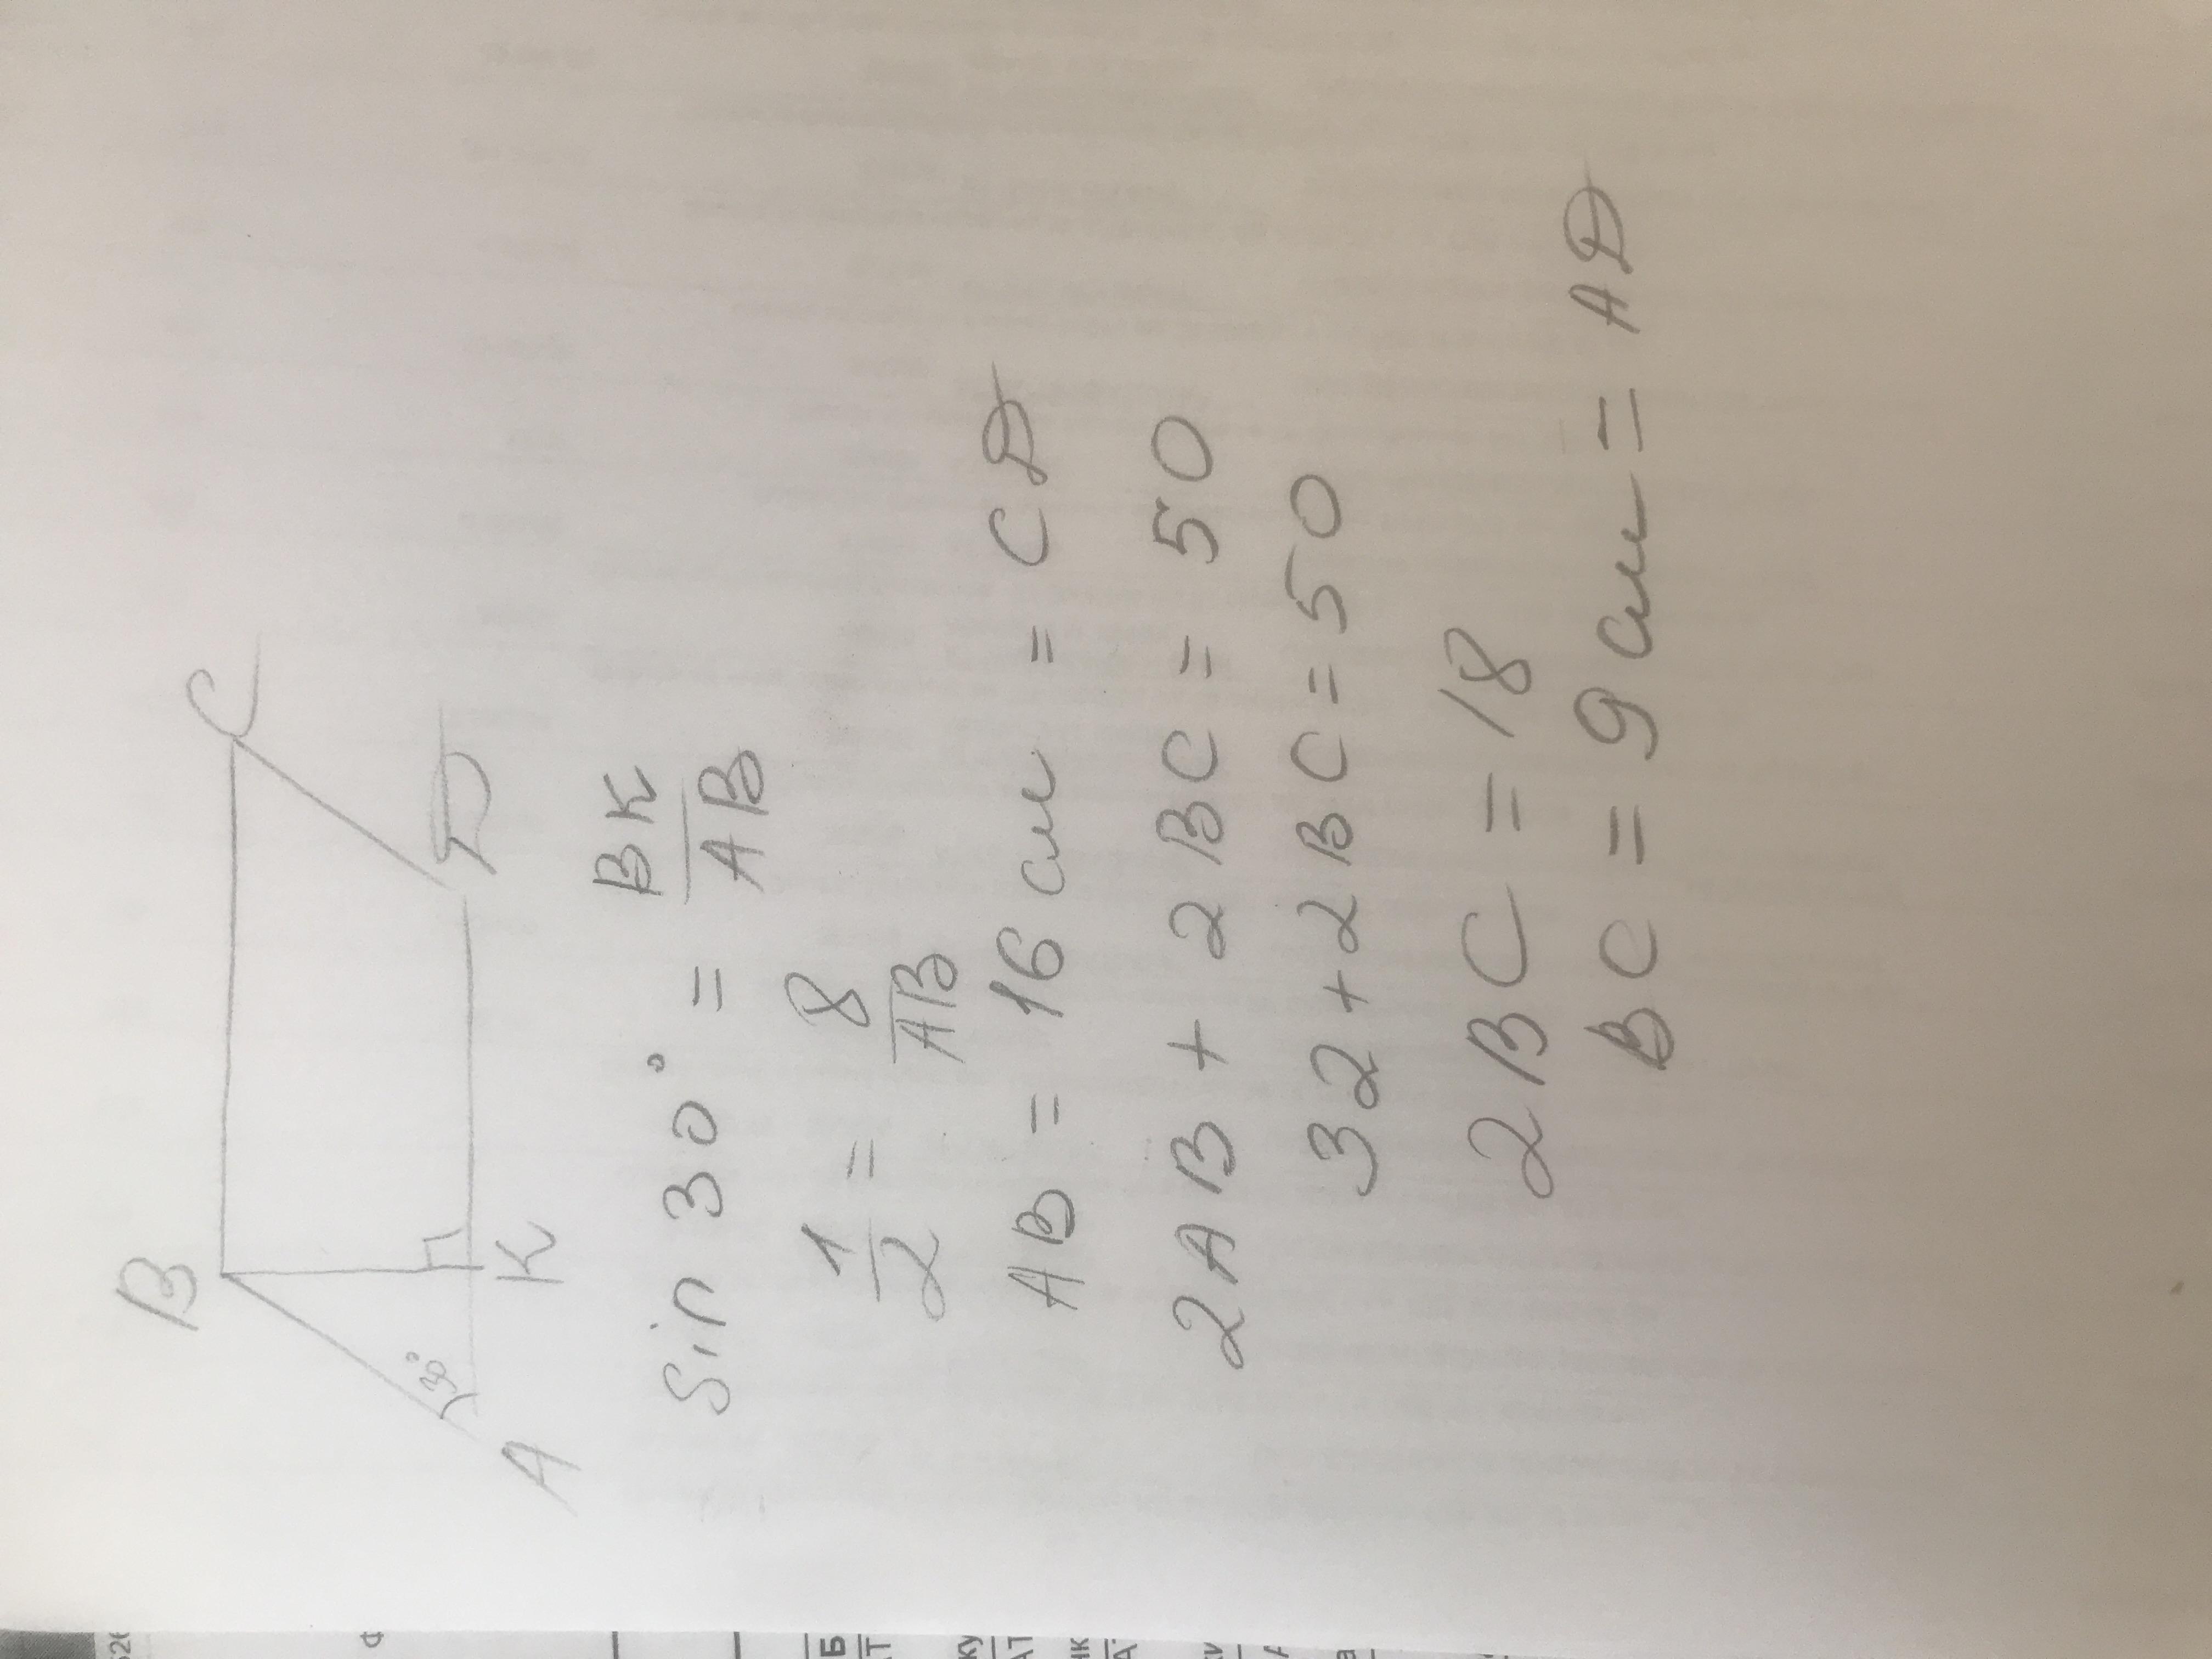 B C
30°
A K D
Sin 30° = BK/AB
1/2 = 8/AB
AB = 16 см = CD
2AB + 2BC = 50
32 + 2BC = 50
2BC = 18
BC = 9 см = AD